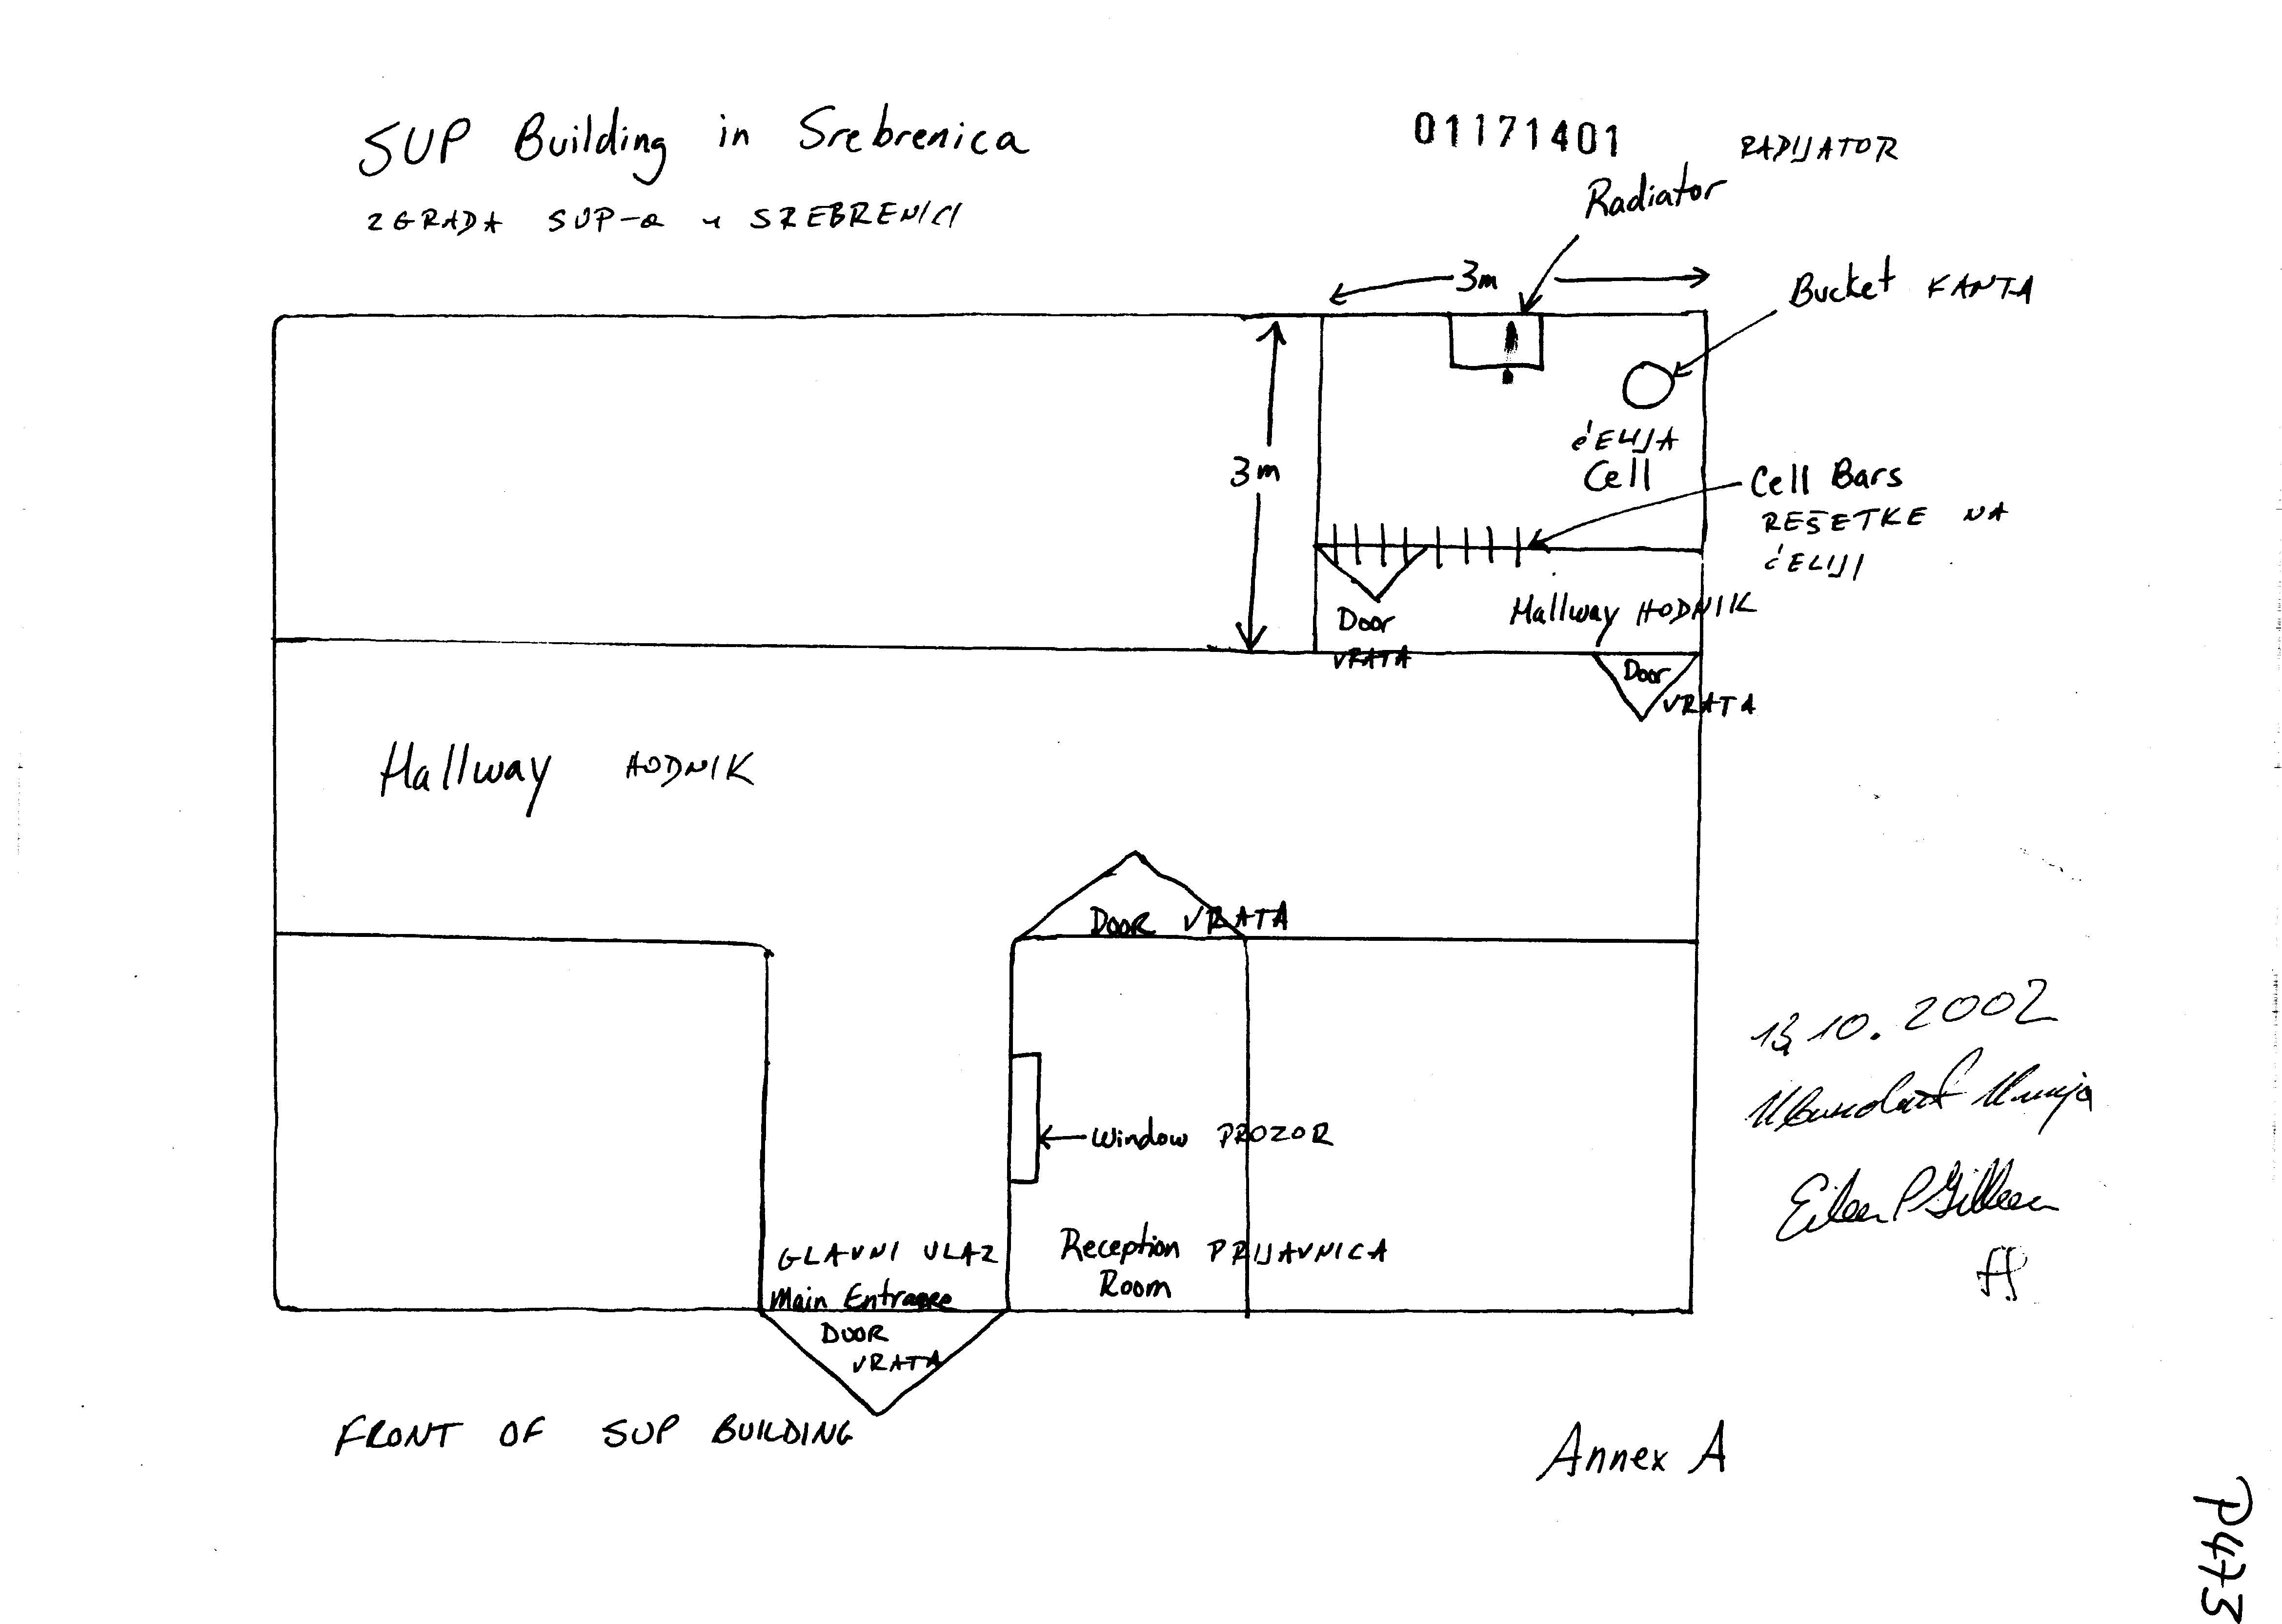 SUP Building in Srebrenica
ZGRADA SUP-a u SREBRENICI
01171401
RADIJATOR
Radiator
3m
Bucket KANTA
ćELIJA
Cell
3m
Cell Bars
REŠETKE NA
ćELIJI
Door
VRATA
Hallway HODNIK
Door
VRATA
Hallway HODNIK
DOOR VRATA
Window PROZOR
GLAVNI ULAZ
Main Entrance
Reception PRIJAVNICA
Room
DOOR
VRATA
13.10.2002
FRONT OF SUP BUILDING
Annex A
P473